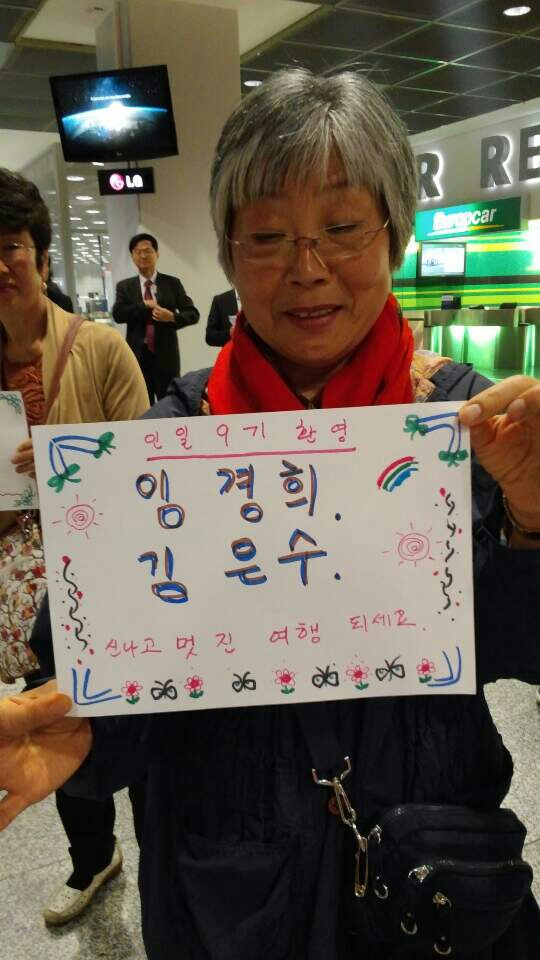 LG
R RE
Europcar
인일 9기 환영
임 경희.
김 은수.
신나고 멋진 여행 되세요.